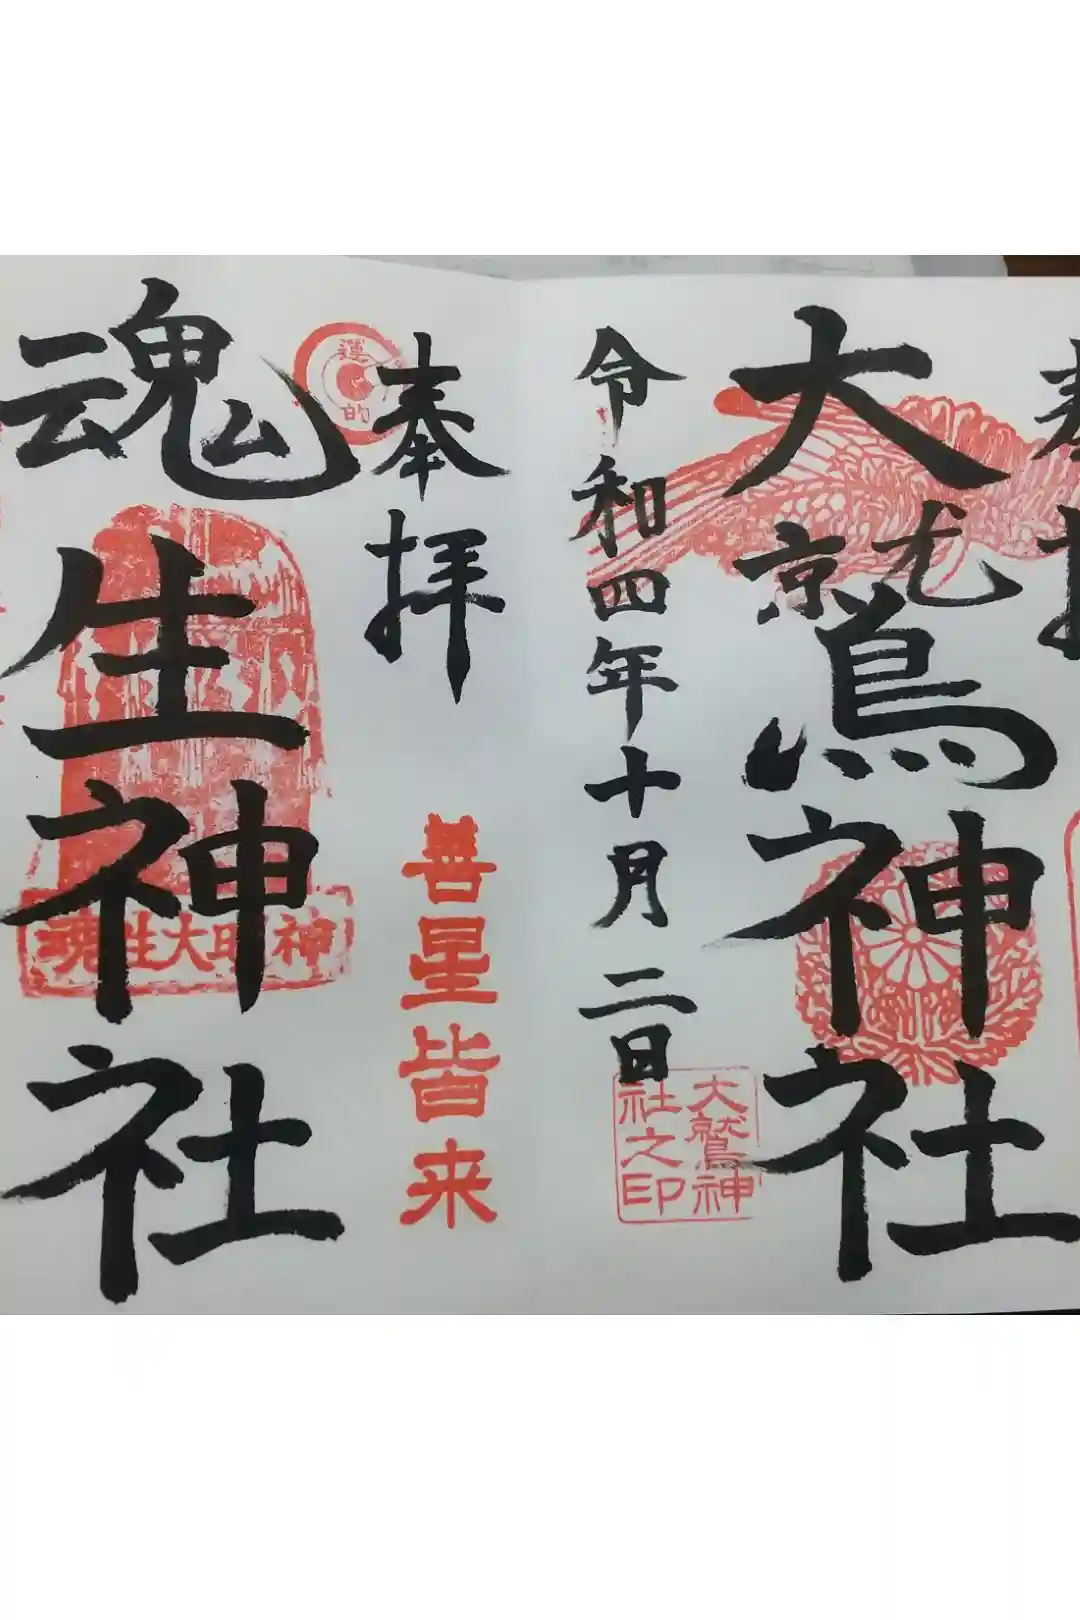 奉拝
大鷲神社
令和四年十月二日
大鷲神
社之印
奉拝
運
的
善星皆来
魂生神社
魂生大明神